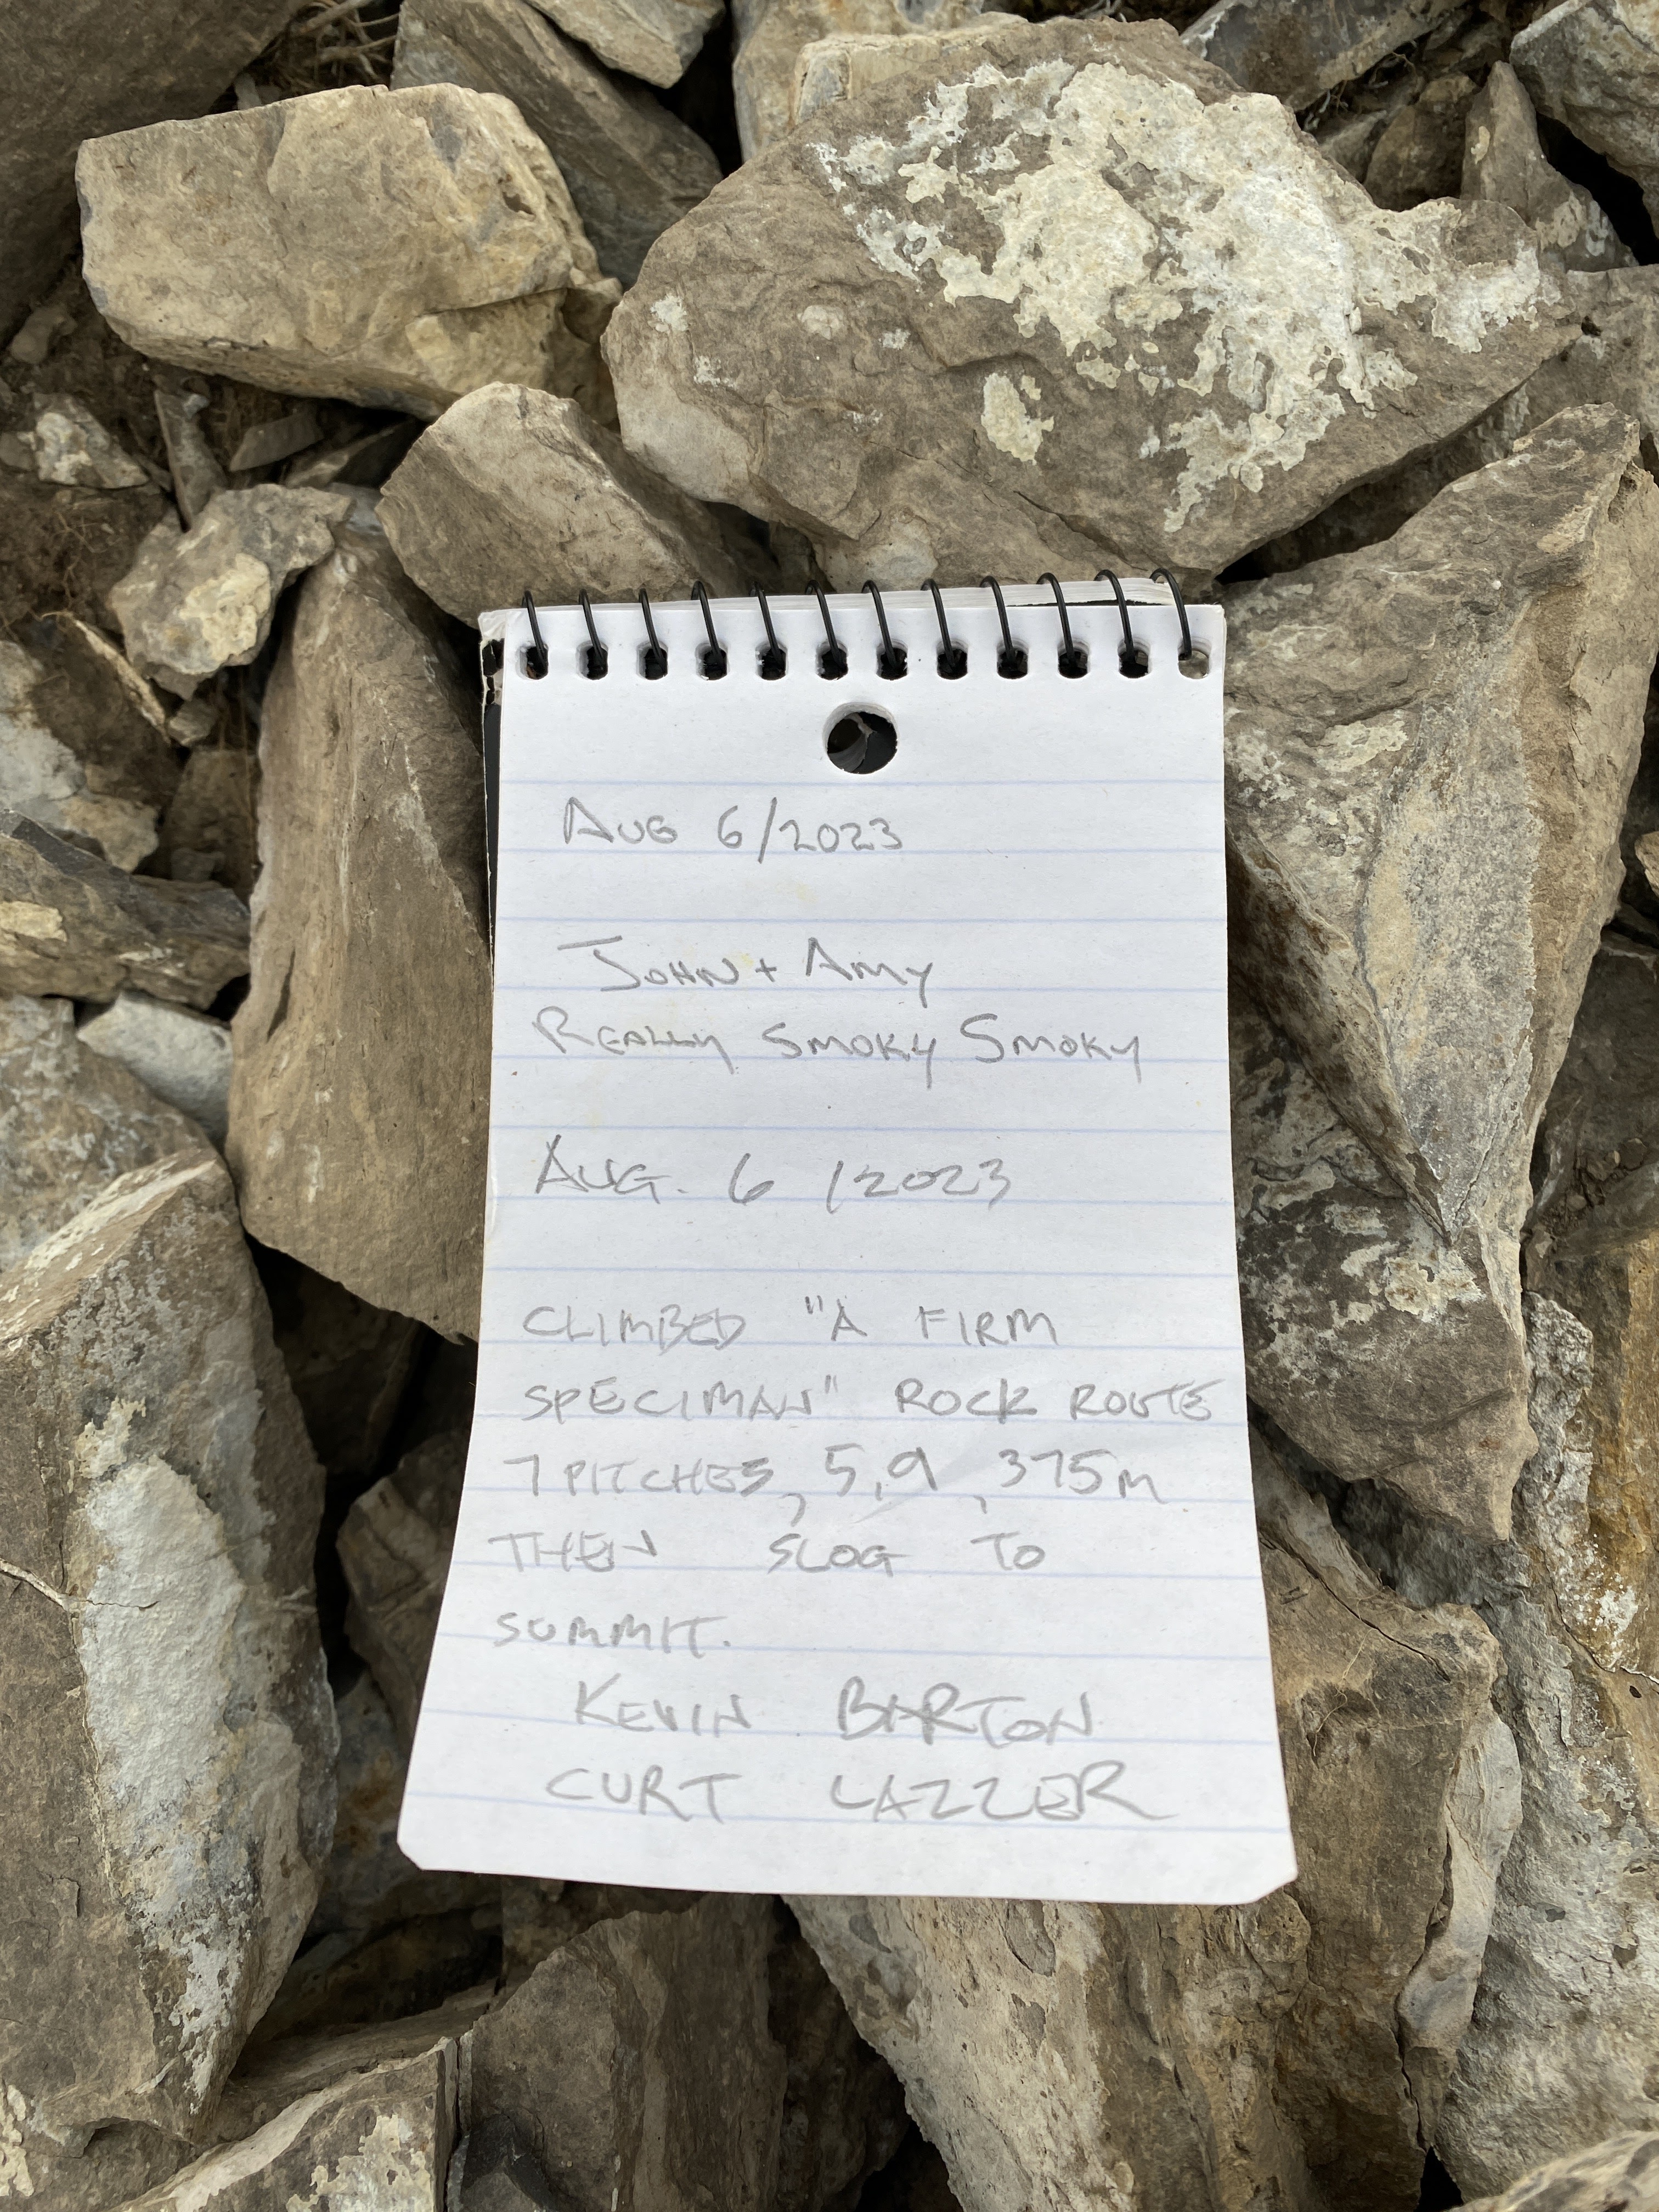 AUG 6/2023
JOHN + AMY
REALLY SMOKY SMOKY
AUG. 6 /2023
CLIMBED "A FIRM
SPECIMAN" ROCK ROUTE
7 PITCHES, 5.9, 375m
THEN SLOG TO
SUMMIT.
KEVIN BARTON
CURT LAZZER